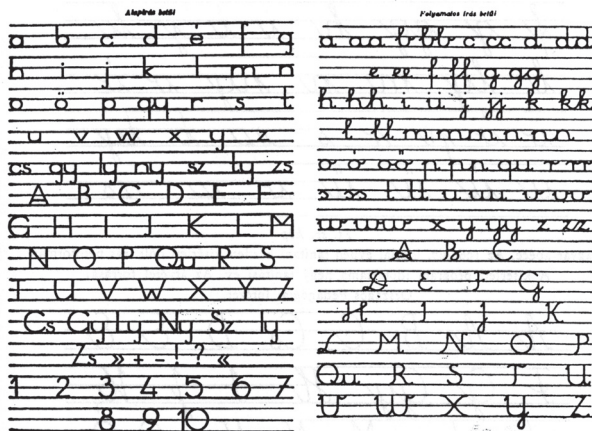 Alapírás betűi
a b c d é f g
h i j k l m n
o ö p qu r s t
u v w x y z
cs gy ly ny sz ty zs
A B C D E F
G H I J K L M
N O P Qu R S
T U V W X Y Z
Cs Gy Ly Ny Sz Ty
Zs » + - ! ? «
1 2 3 4 5 6 7
8 9 10
Folyamatos írás betűi
a aa b bb c cc d dd
e ee f ff g gg
h hh i ii j jj k kk
l ll m mm n nn
o ó oö p pp qu r rr
s ss t tt u uu v vv
w ww x y yy z zz
A B C
D E F G
H I J K
L M N O P
Qu R S T U
V W X Y Z